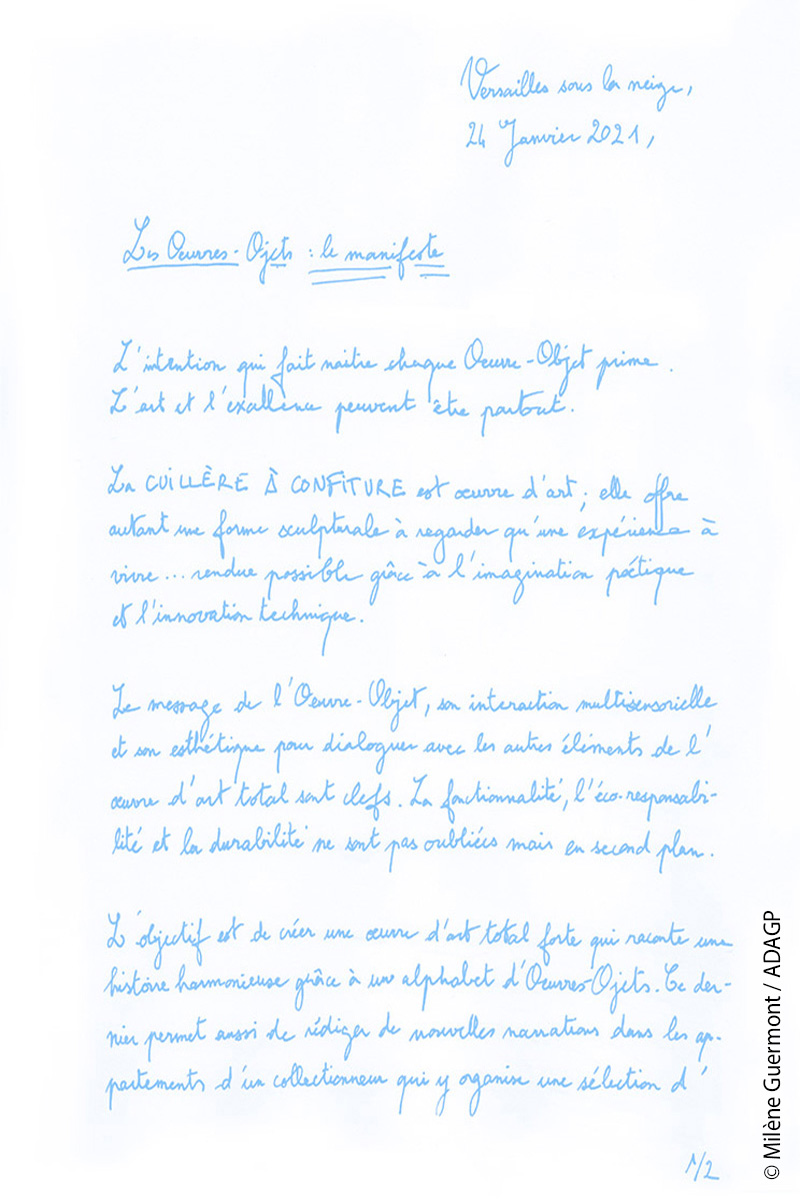 Versailles sous la neige,
24 Janvier 2021,
Les Oeuvres-Ojets : le manifeste
L'intention qui fait naitre chaque Oeuvre-Objet prime.
L'art et l'exallence peuvent être partout.
La CUILLÈRE À CONFITURE est œuvre d'art ; elle offre
autant une forme sculpturale à regarder qu'une expérience à
vivre ... rendue possible grâce à l'imagination poétique
et l'innovation technique.
Le message de l'Oeuvre-Objet, son interaction multisensorielle
et son esthétique pour dialoguer avec les autres éléments de l'
œuvre d'art total sont clefs. La fonctionnalité, l'éco-responsabi-
lité et la durabilité ne sont pas oubliées mais en second plan.
L'objectif est de créer une œuvre d'art total forte qui raconte une
histoire harmonieuse grâce à un alphabet d'Oeuvres-Ojets. Ce der-
nier permet aussi de rédiger de nouvelles narrations dans les ap-
partements d'un collectionneur qui y organise une sélection d'
1/2
© Milène Guermont / ADAGP